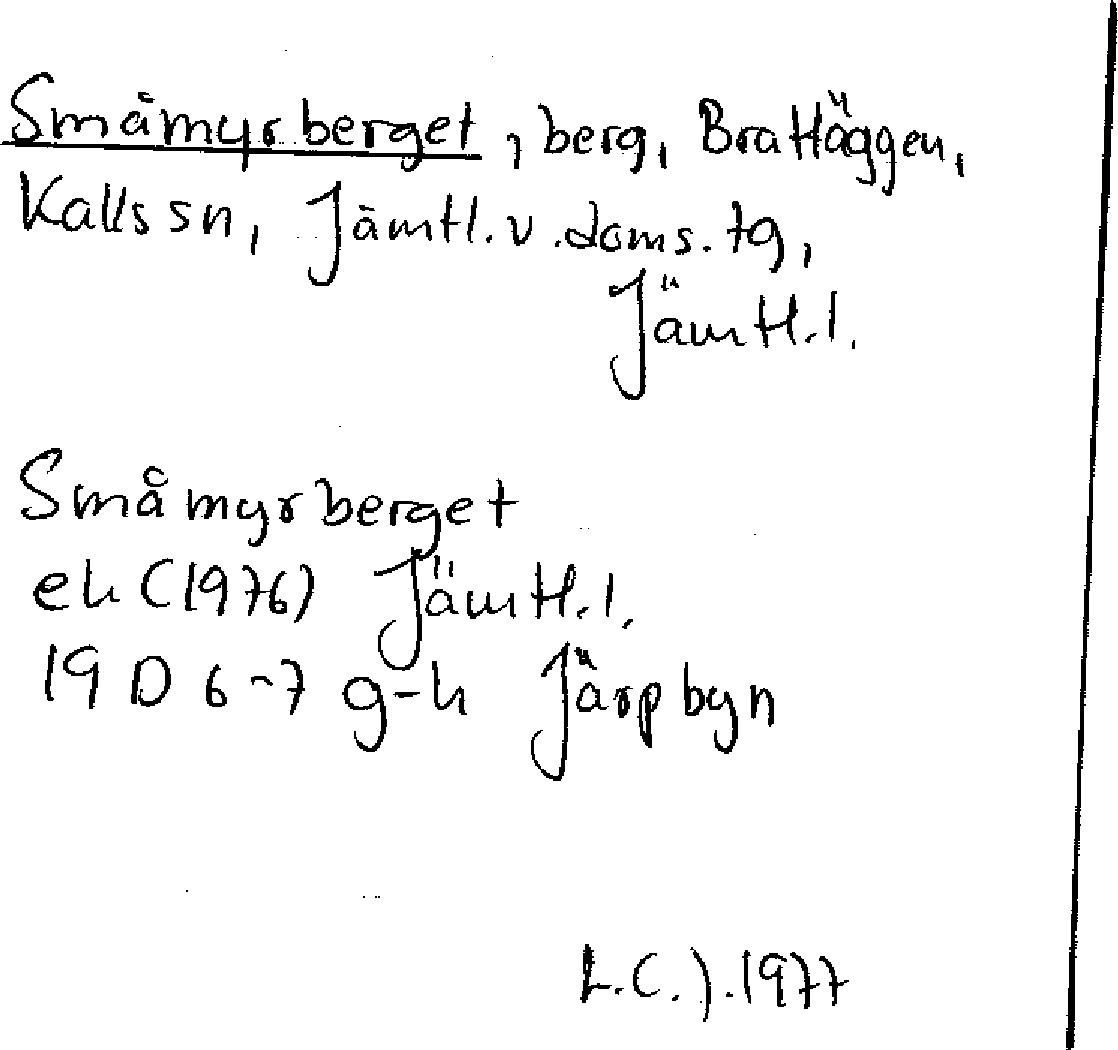 Småmyrberget, berg, Brattäggen,
Kalls sn, Jämtl. v. doms. tg,
Jämtl. l.
Småmyrberget
ek (1976) Jämtl. l.
19 D 6-7 g-h Järpbyn
L.C.J. 1977